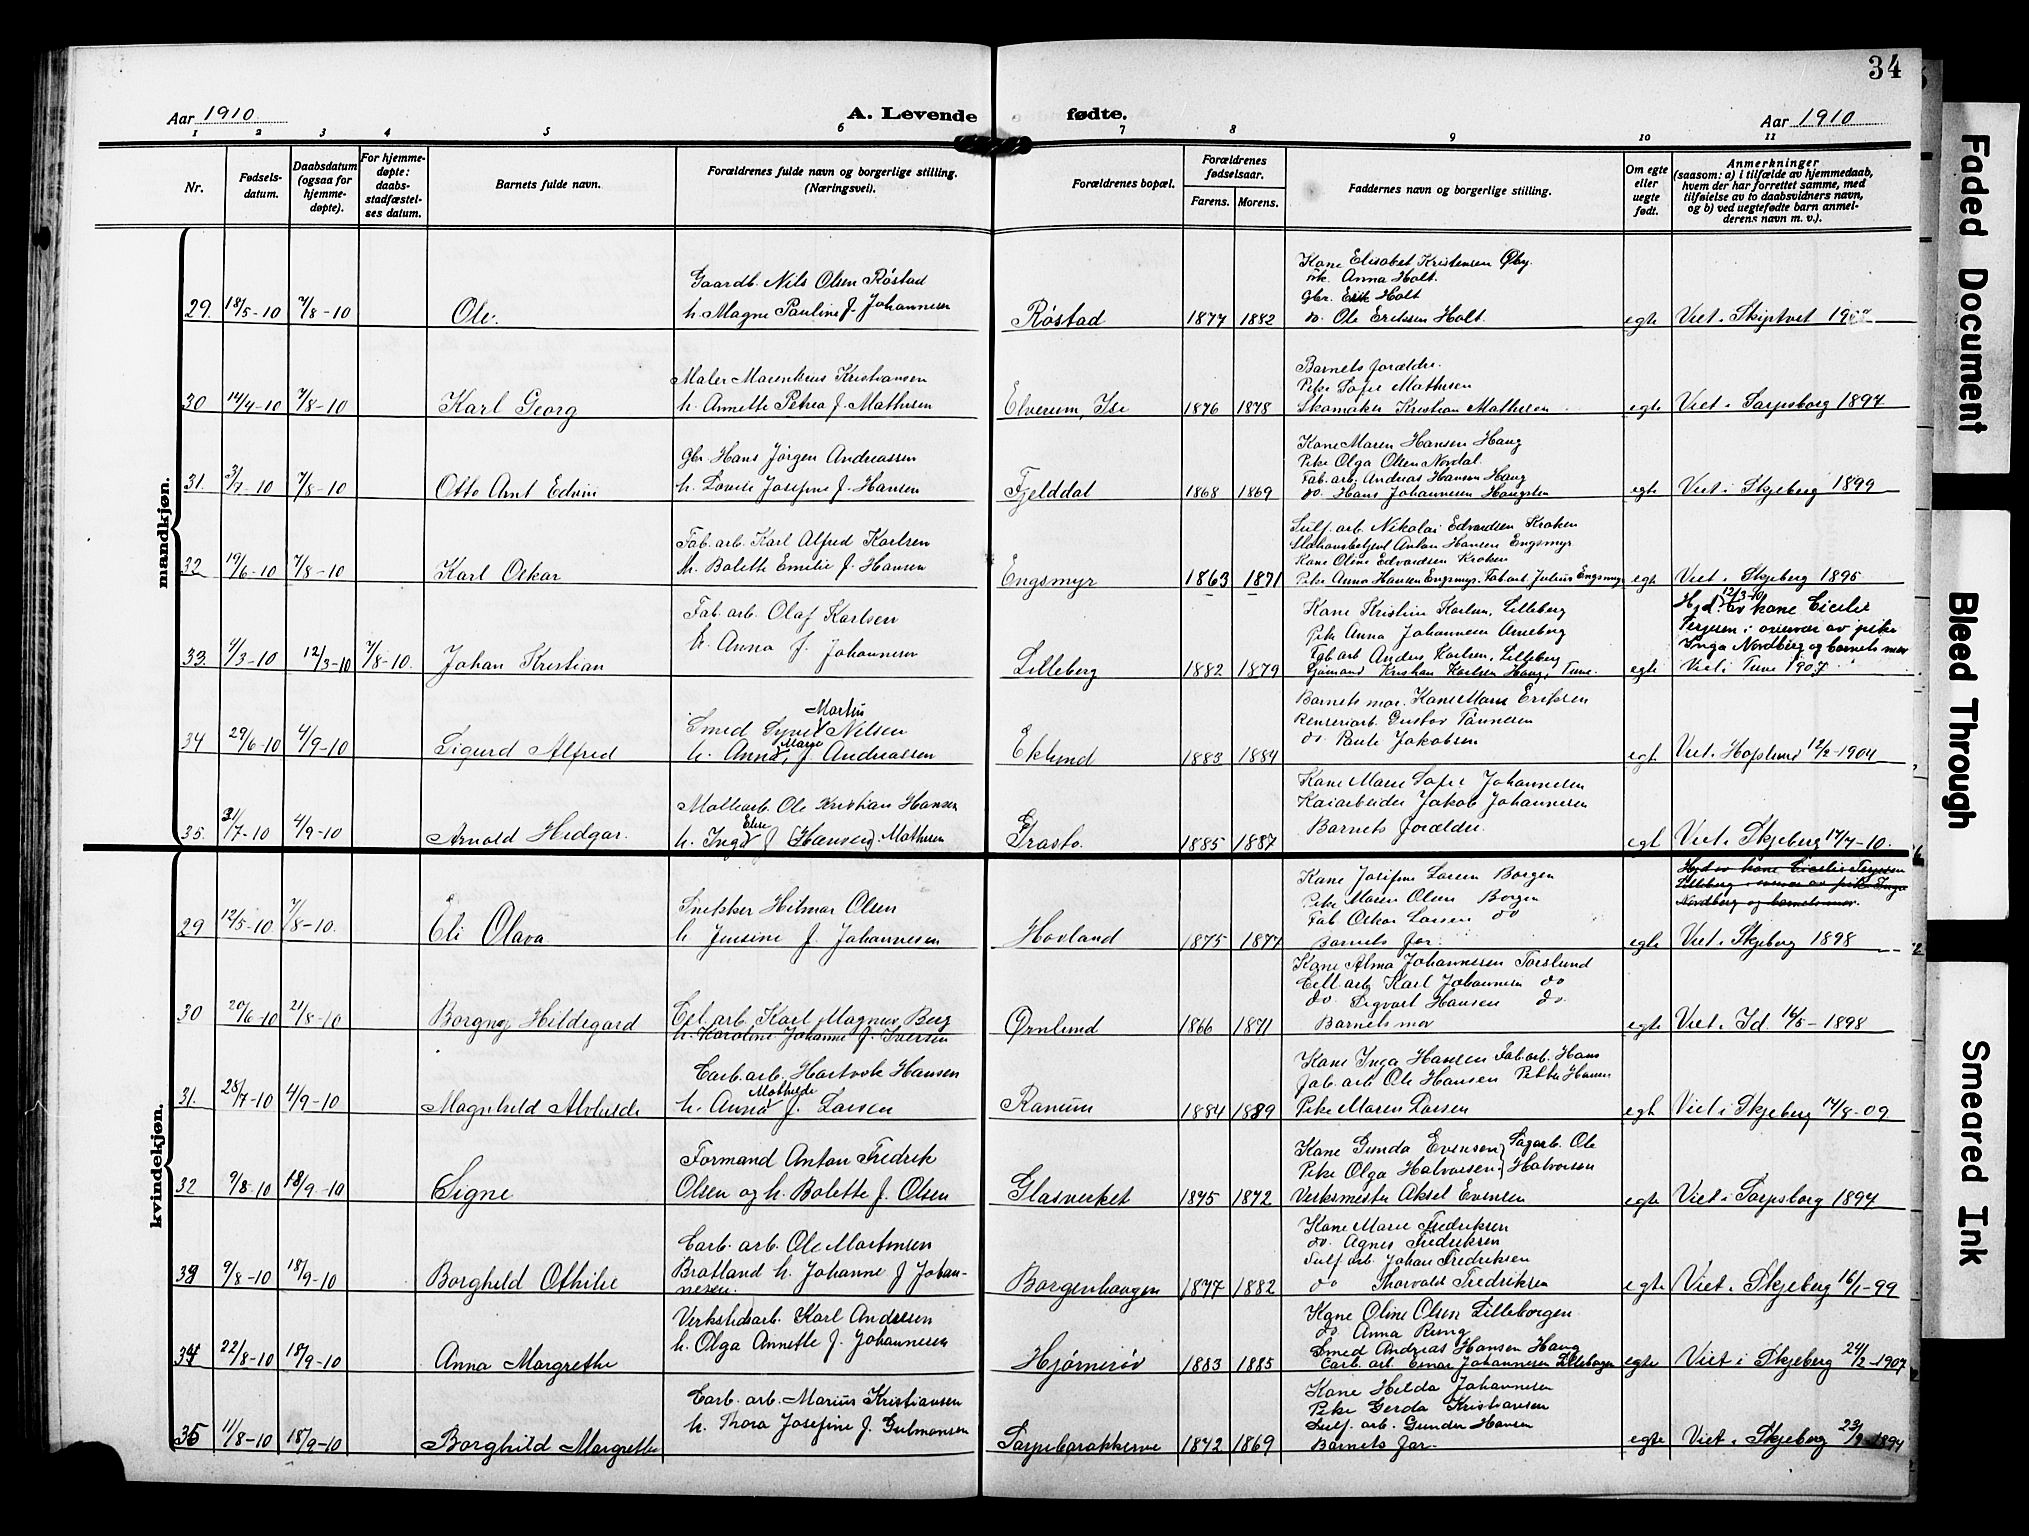 34
Aar 1910
A. Levende fødte.
Aar 1910
1 2 3 4 5 6 7 8 9 10 11
Nr.
Fødsels-
datum.
Daabsdatum
(ogsaa for
hjemme-
døpte).
For hjemme-
døpte:
daabs-
stadfæstel-
ses datum.
Barnets fulde navn.
Forældrenes fulde navn og borgerlige stilling.
(Næringsvei).
Forældrenes bopæl.
Forældrenes
fødselsaar.
Farens. Morens.
Faddernes navn og borgerlige stilling.
Om egte
eller
uegte
født.
Anmerkninger
(saasom: a) i tilfælde av hjemmedaab,
hvem der har forrettet samme, med
tilføielse av to daabsvidners navn,
og b) ved uegtefødte barn anmel-
derens navn m. v.).
mandkjøn.
29. 18/5-10 7/8-10 Ole.
Gaardb. Nils Olsen Røstad
h. Magne Pauline f. Johannesen
Røstad 1877 1882
Kone Elisabet Kristensen Øby.
Anna Holt.
Gbr. Erik Holt
do. Ole Eriksen Holt.
egte Viet i Skiptvet
30 14/4-10 7/8-10 Karl Georg
Maler Marentius Kristiansen
h. Annette Petrea f. Mathisen
Elverum, Ise 1876 1878
Barnets forældre.
Pike Sofie Mathisen
Skomaker Kristian Mathisen
egte Viet i Sarpsborg 1897
31. 3/7-10 7/8-10 Otto Arnt Edvin
Gbr. Hans Jørgen Andreassen
h. Lovise Josefine f. Hansen
Fjelddal 1868 1869
Kone Maren Hansen Haug
Pike Olga Olsen Nordal.
Fab. arb. Andreas Hansen Haug
do. Hans Johannesen Haugsten
egte Viet i Skjeberg 1899
32 19/6-10 7/8-10 Karl Oskar
Fab. arb. Karl Alfred Karlsen
h. Bolette Emilie f. Hansen
Engsmyr 1863 1871
Sulf. arb. Nikolai Edvardsen Kroken
Anton Hansen Engsmyr
Kone Oline Edvardsen Kroken
Pike Anna Hansen Engsmyr. Fab. arb. Julius Engsmyr
egte Viet i Skjeberg 1895
33. 4/3-10 12/3-10 7/8-10. Johan Kristian
Fab. arb. Olaf Karlsen
h. Anna f. Johannesen
Lilleberg 1882 1879
Kone Kristine Karlsen, Lilleberg
Pike Anna Johannesen Arneberg
Fab. arb. Anders Karlsen, Lilleberg
Sjømand Kristian Karlsen Haug, Tune.
egte
12/3-10
Hjd. av kone Cicilie
Terjesen i overvær av pike
Inga Nordberg og barnets mor
Viet i Tune 1907
34 29/6-10 4/9-10 Sigurd Alfred
Martin
Smed Syver Nilsen
Marie
h. Anna, f. Andreassen
Eklund 1883 1884
Barnets mor. Kone Marie Eriksen
Renseriarb. Gustav Tønnesen
do. Paule Jakobsen
egte Viet i Hafslund 12/2-1904
35. 31/7-10 4/9-10 Arnold Hedgar.
Mollearb. Ole Kristian Hansen
Elise
h. Inga f. (Hansen). Mathisen
Grasto. 1885 1887
Kone Marie Sofie Johannesen
Kaiarbeider Jakob Johannesen
Barnets forældre.
egte Viet i Skjeberg 17/4-10.
kvindekjøn.
29 12/5-10 7/8-10. Eli Olava
Snekker Hilmar Olsen
h. Jensine f. Johannesen
Hovland 1875 1877
Kone Josefine Larsen Borgen
Pike Maren Olsen Borgen
Fab. Oskar Larsen do
Barnets far.
egte
Hjd av kone Cicilie Terjesen
Lilleberg i overvær av pike Inga
Nordberg og barnets mor.
Viet i Skjeberg 1898
30 20/6-10 21/8-10 Borgny Hildegard
Cel. arb. Karl Magnus Berg
h. Karoline Johanne f. Iversen
Ørnlund 1866 1871
Kone Alma Johannesen Torslund
Cell. arb. Karl Johannesen do
do. Sigvart Hansen do.
Barnets mor
egte Viet i Id. 14/5-1898
31. 25/7-10 4/9-10 Magnhild Alvhilde
Carb. arb. Hartvik Hansen
Mathilde
h. Anna f. Larsen
Ranum 1884 1889
Kone Inga Hansen Fab. arb. Hans
Fab. arb Ole Hansen Petter Hansen
Pike Maren Larsen
egte Viet i Skjeberg 14/8-09
32 9/8-10 18/9-10 Signe
Formand Anton Fredrik
Olsen og h. Bolette f. Olsen
Glasverket 1875 1872
Kone Gunda Evensen } Sagarb. Ole
Pike Olga Halvorsen } Halvorsen
Verksmester Aksel Evensen
egte Viet i Sarpsborg 1897
33 9/8-10 18/9-10 Borghild Othilie
Carb. arb. Ole Martinsen
Bratland h. Johanne f Johan-
nesen.
Borgenhaugen 1877 1882
Kone Marie Fredriksen
do. Agnes Fredriksen
Sulf. arb. Johan Fredriksen
do Thorvald Fredriksen
egte Viet i Skjeberg 16/1-99
34 22/8-10 18/9-10 Anna Margrethe
Verkstedsarb. Karl Andresen
h. Olga Annette f. Johannesen
Hjørnerøv 1883 1885
Kone Oline Olsen Lilleborgen
do Anna Ring
Smed Andreas Hansen Haug
Carb. arb. Einar Johannesen Lilleborgen
egte Viet i Skjeberg 24/2-1907
35 11/8-10 18/9-10 Borghild Margrethe
Carb. arb. Marius Kristiansen
h. Thora Josefine f. Gulmansen
Sarpebarakkerne 1872 1869
Kone Helda Johannesen
Pike Gerda Kristiansen
Sulf. arb. Gunder Hansen
Barnets far.
egte Viet i Skjeberg 23/9-1894
Faded Document
Bleed Through
Smeared Ink